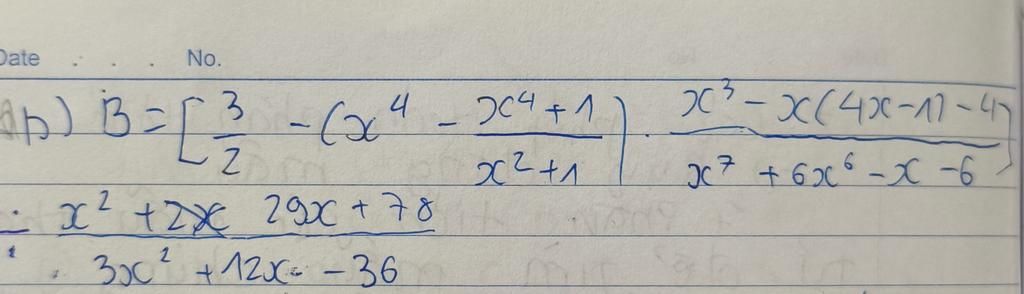 Date . . . No.
b) B = [ 3/2 - ( x⁴ - (x⁴ + 1)/(x² + 1) ) . (x³ - x(4x - 1) - 4)/(x⁷ + 6x⁶ - x - 6) ]
: (x² + 29x + 78)/(3x² + 12x - 36)